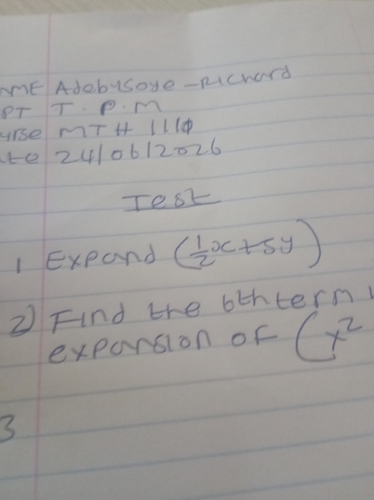 AME Adebusoye - Richard
PT T.P.M
urse MTH 111
ate 24/06/2026
Test
1 Expand (1/2x+5y)
2) Find the 6th term
expansion of (x²
3